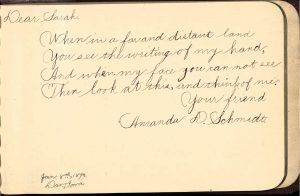 Dear Sarah.
When in a far and distant land
You see the writing of my hand,
And when my face you can not see
Then look at this, and think of me.
Your friend
Amanda D. Schmidt
Iowa